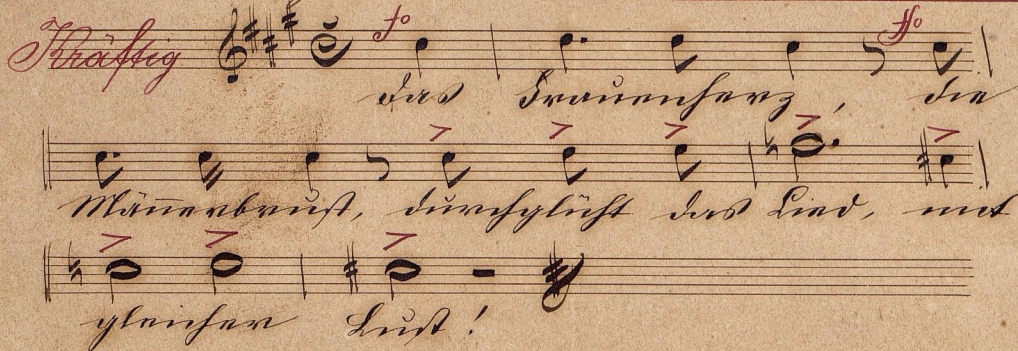 Kräftig fo ffo
das Frauenherz, die
Männerbrust, durchglüht das Lied, mit
gleicher Lust!